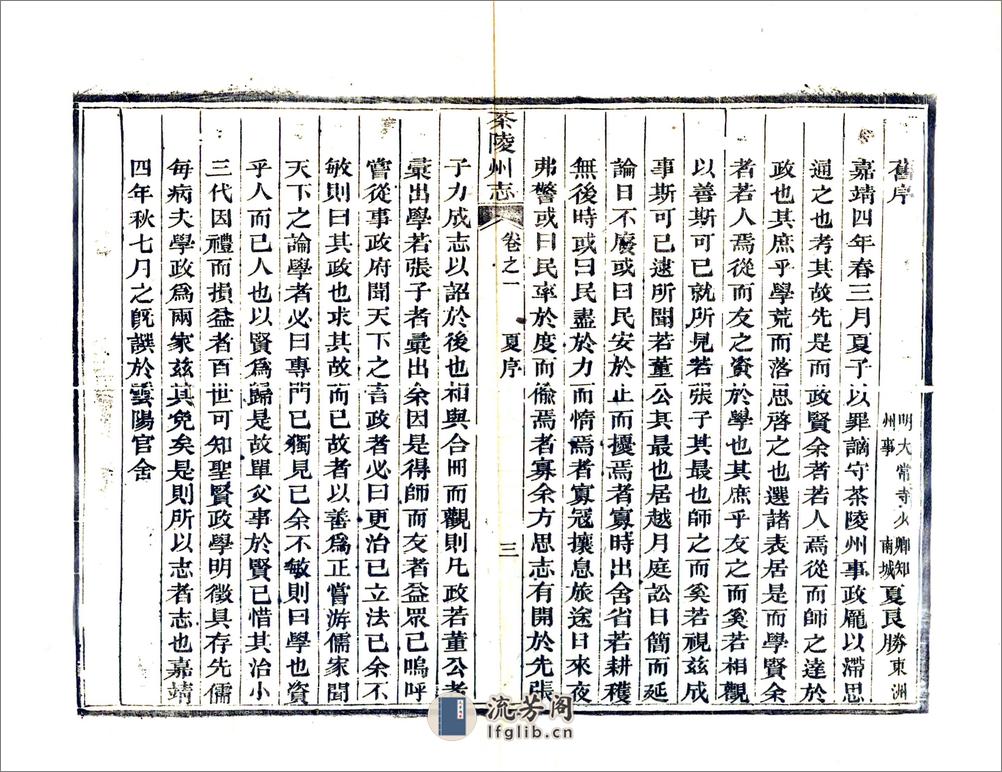 舊序
明大常寺少卿知州事 南城 夏良勝 東洲
嘉靖四年春三月夏子以罪謫守茶陵州事政龐以滯思
通之也考其故先是而政賢余者若人焉從而師之達於
政也其庶乎學荒而落思啓之也選諸表居是而學賢余
者若人焉從而友之資於學也其庶乎友之而奚若相觀
以善斯可已就所見若張子其最也師之而奚若視茲成
事斯可已逮所聞若董公其最也居越月庭訟日簡而延
論日不廢或曰民安於止而擾焉者寡時出舍省若耕穫
無後時或曰民盡於力而惰焉者寡冦攘息旅途日來夜
弗警或曰民率於度而偸焉者寡余方思志有開於先張
茶陵州志 卷之一 夏序 三
子力成志以詔於後也相與合冊而觀則凡政若董公者
彙出學若張子者彙出余因是得師而友者益眾已嗚呼
嘗從事政府聞天下之言政者必曰更治已立法已余不
敏則曰其政也求其故而已故者以善爲正嘗游儒家聞
天下之論學者必曰專門已獨見已余不敏則曰學也資
乎人而已人也以賢爲歸是故單父事於賢已惜其治小
三代因禮而損益者百世可知聖賢政學明徵具存先儒
每病夫學政爲兩家茲其免矣是則所以志者志也嘉靖
四年秋七月之旣譔於雲陽官舍
流芳阁
lfglib.cn